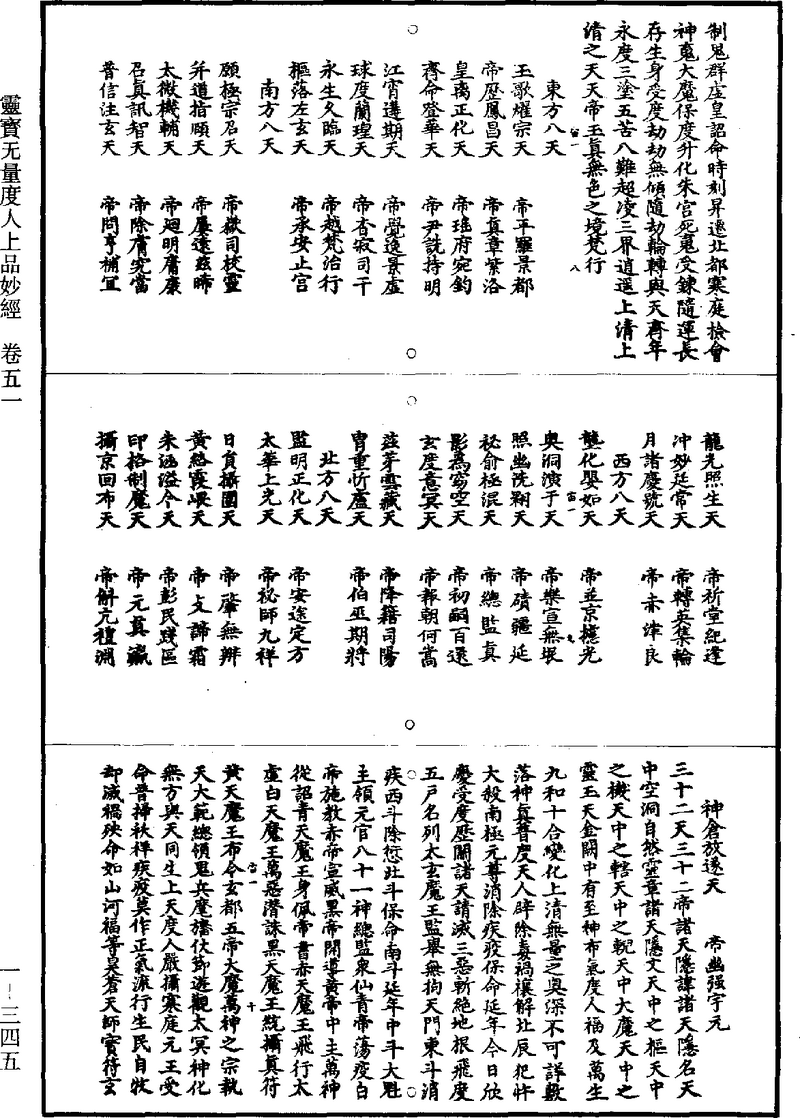 制鬼群虛皇詔命時刻昇遷北都寒庭檢會
神䰟大魔保度升化朱宮死䰟受鍊隨運長
存生身受度劫劫無傾隨劫輪轉與天齊年
永度三塗五苦八難超凌三界逍遥上清上
清之天天帝玉眞無色之境梵行
東方八天
玉歌燿宗天 帝平羅景都
帝歷鳳昌天 帝眞章紫洛
皇禹正化天 帝瑤府宛鈞
齊命登華天 帝尹詵持明
江宵遘期天 帝覺逸景虛
球度蘭瑝天 帝杳寂司干
永生久臨天 帝越梵治行
樞落左玄天 帝承安止宮
南方八天
顧極宗名天 帝嶽司校靈
弁道指頤天 帝屢遠茲晞
太微機輔天 帝迴明膺康
召眞訊智天 帝除膺究當
普信注玄天 帝問亨補宜
龍光照生天 帝祈堂紀逢
冲妙延常天 帝轉英集輪
月諸慶號天 帝赤津良
西方八天
龔化嬰如天 帝並京樁光
奥洞演于天 帝樂宣無垠
照幽洗翱天 帝磧疆延
祕俞極混天 帝總監眞
影爲窈空天 帝初嗣百還
玄度意冥天 帝報朝何嵩
茲芽雲藏天 帝降籍司陽
冑重忻盧天 帝伯巫期將
北方八天
監明正化天 帝安途定方
太華上光天 帝祕師九祥
日負攝圖天 帝肇無辨
黃絡霞㟴天 帝攴諦霜
朱涵溢今天 帝彭民踐區
印格制魔天 帝元眞瀛
攝京回布天 帝斛亢禮淵
神倉放遂天 帝幽强宇元
三十二天三十二帝諸天隱諱諸天隱名天
中空洞自然靈章諸天隱文天中之樞天中
之機天中之轄天中之輗天中大魔天中之
靈玉天金闕中有至神布氣度人福及萬生
九和十合變化上清無量之奥深不可詳敷
落神眞普度天人辟除毒禍禳解北辰犯忤
大殺南極元尊消除疾疫保命延年今日欣
慶受度歷關諸天請滅三惡斬絶地根飛度
五戸名列太玄魔王監舉無拘天門東斗消
疾西斗除愆北斗保命南斗延年中斗大魁
主領元官八十一神總監衆仙青帝蕩疫白
帝施教赤帝宣威黑帝開導黃帝中主萬神
從詔青天魔王身佩帝書赤天魔王飛行太
虛白天魔王萬惡潛誅黑天魔王統攝眞符
黃天魔王布令玄都五帝大魔萬神之宗執
天大範總領鬼兵麾旛伏節遊觀太冥神化
無方與天同生上天度人嚴攝寒庭元王受
命普掃袄祥疾疫莫作正氣流行生民自牧
却滅禍殃命如山河福等昊蒼天師寶符玄
靈寶无量度人上品妙經 卷五一
一-三四五